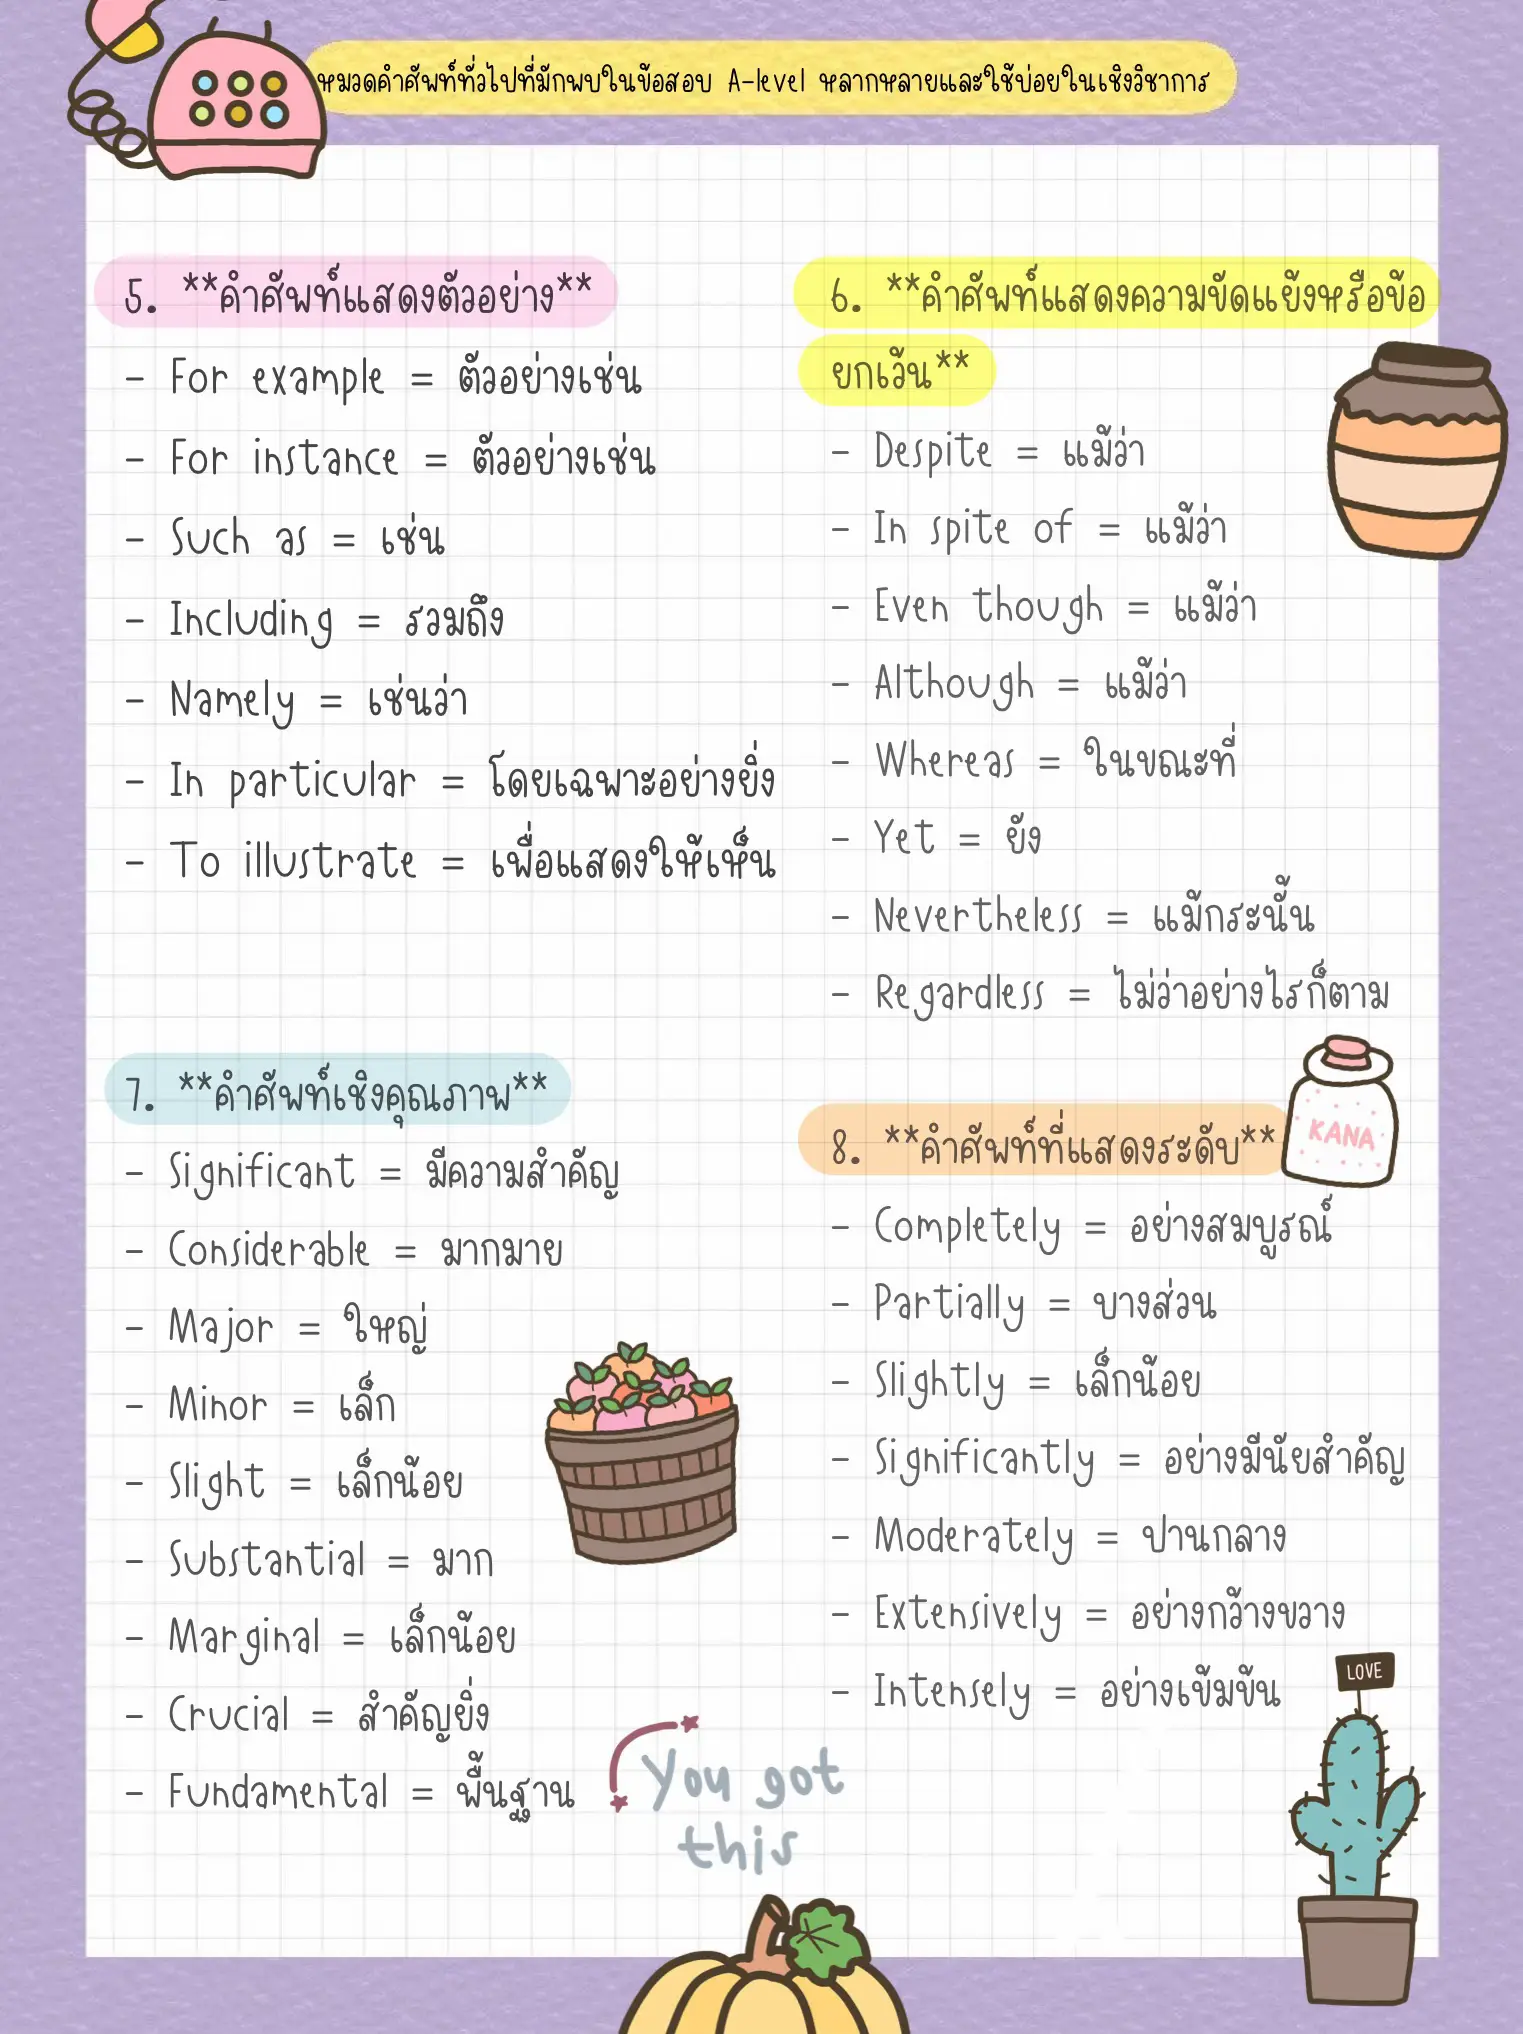 หมวดคำศัพท์ทั่วไปที่มักพบในข้อสอบ A-level หลากหลายและใช้บ่อยในเชิงวิชาการ
5. **คำศัพท์แสดงตัวอย่าง**
- For example = ตัวอย่างเช่น
- For instance = ตัวอย่างเช่น
- Such as = เช่น
- Including = รวมถึง
- Namely = เช่นว่า
- In particular = โดยเฉพาะอย่างยิ่ง
- To illustrate = เพื่อแสดงให้เห็น
6. **คำศัพท์แสดงความขัดแย้งหรือข้อ
ยกเว้น**
- Despite = แม้ว่า
- In spite of = แม้ว่า
- Even though = แม้ว่า
- Although = แม้ว่า
- Whereas = ในขณะที่
- Yet = ยัง
- Nevertheless = แม้กระนั้น
- Regardless = ไม่ว่าอย่างไรก็ตาม
7. **คำศัพท์เชิงคุณภาพ**
- Significant = มีความสำคัญ
- Considerable = มากมาย
- Major = ใหญ่
- Minor = เล็ก
- Slight = เล็กน้อย
- Substantial = มาก
- Marginal = เล็กน้อย
- Crucial = สำคัญยิ่ง
- Fundamental = พื้นฐาน
8. **คำศัพท์ที่แสดงระดับ**
- Completely = อย่างสมบูรณ์
- Partially = บางส่วน
- Slightly = เล็กน้อย
- Significantly = อย่างมีนัยสำคัญ
- Moderately = ปานกลาง
- Extensively = อย่างกว้างขวาง
- Intensely = อย่างเข้มข้น
KANA
LOVE
You got
this